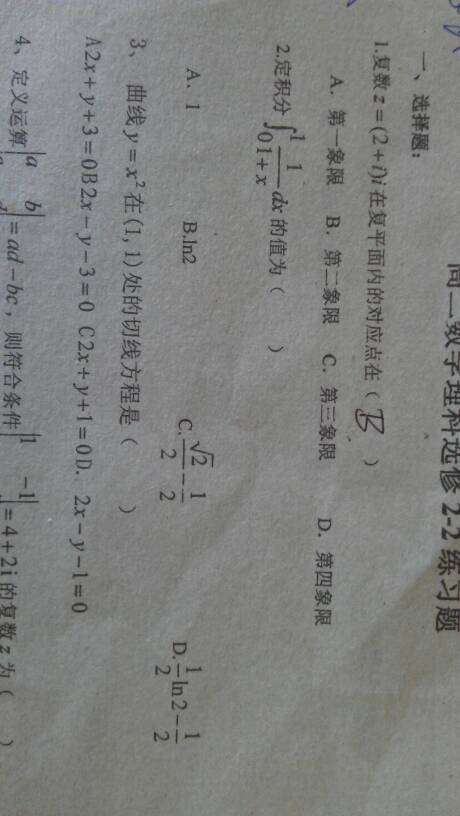 高二数学理科选修 2-2 练习题
一、选择题：
1.复数 z = (2 + i)i 在复平面内的对应点在（ B ）
A．第一象限 B．第二象限 C．第三象限 D．第四象限
2.定积分 ∫₀¹ 1/(1+x) dx 的值为（ ）
A．1 B.ln2 C. √2/2 − 1/2 D. 1/2 ln 2 − 1/2
3、曲线 y = x² 在 (1, 1) 处的切线方程是（ ）
A2x + y + 3 = 0B2x − y − 3 = 0 C2x + y + 1 = 0D．2x − y − 1 = 0
4、定义运算 |a b| = ad − bc，则符合条件 |1 −1| = 4 + 2i 的复数 z 为（ ）